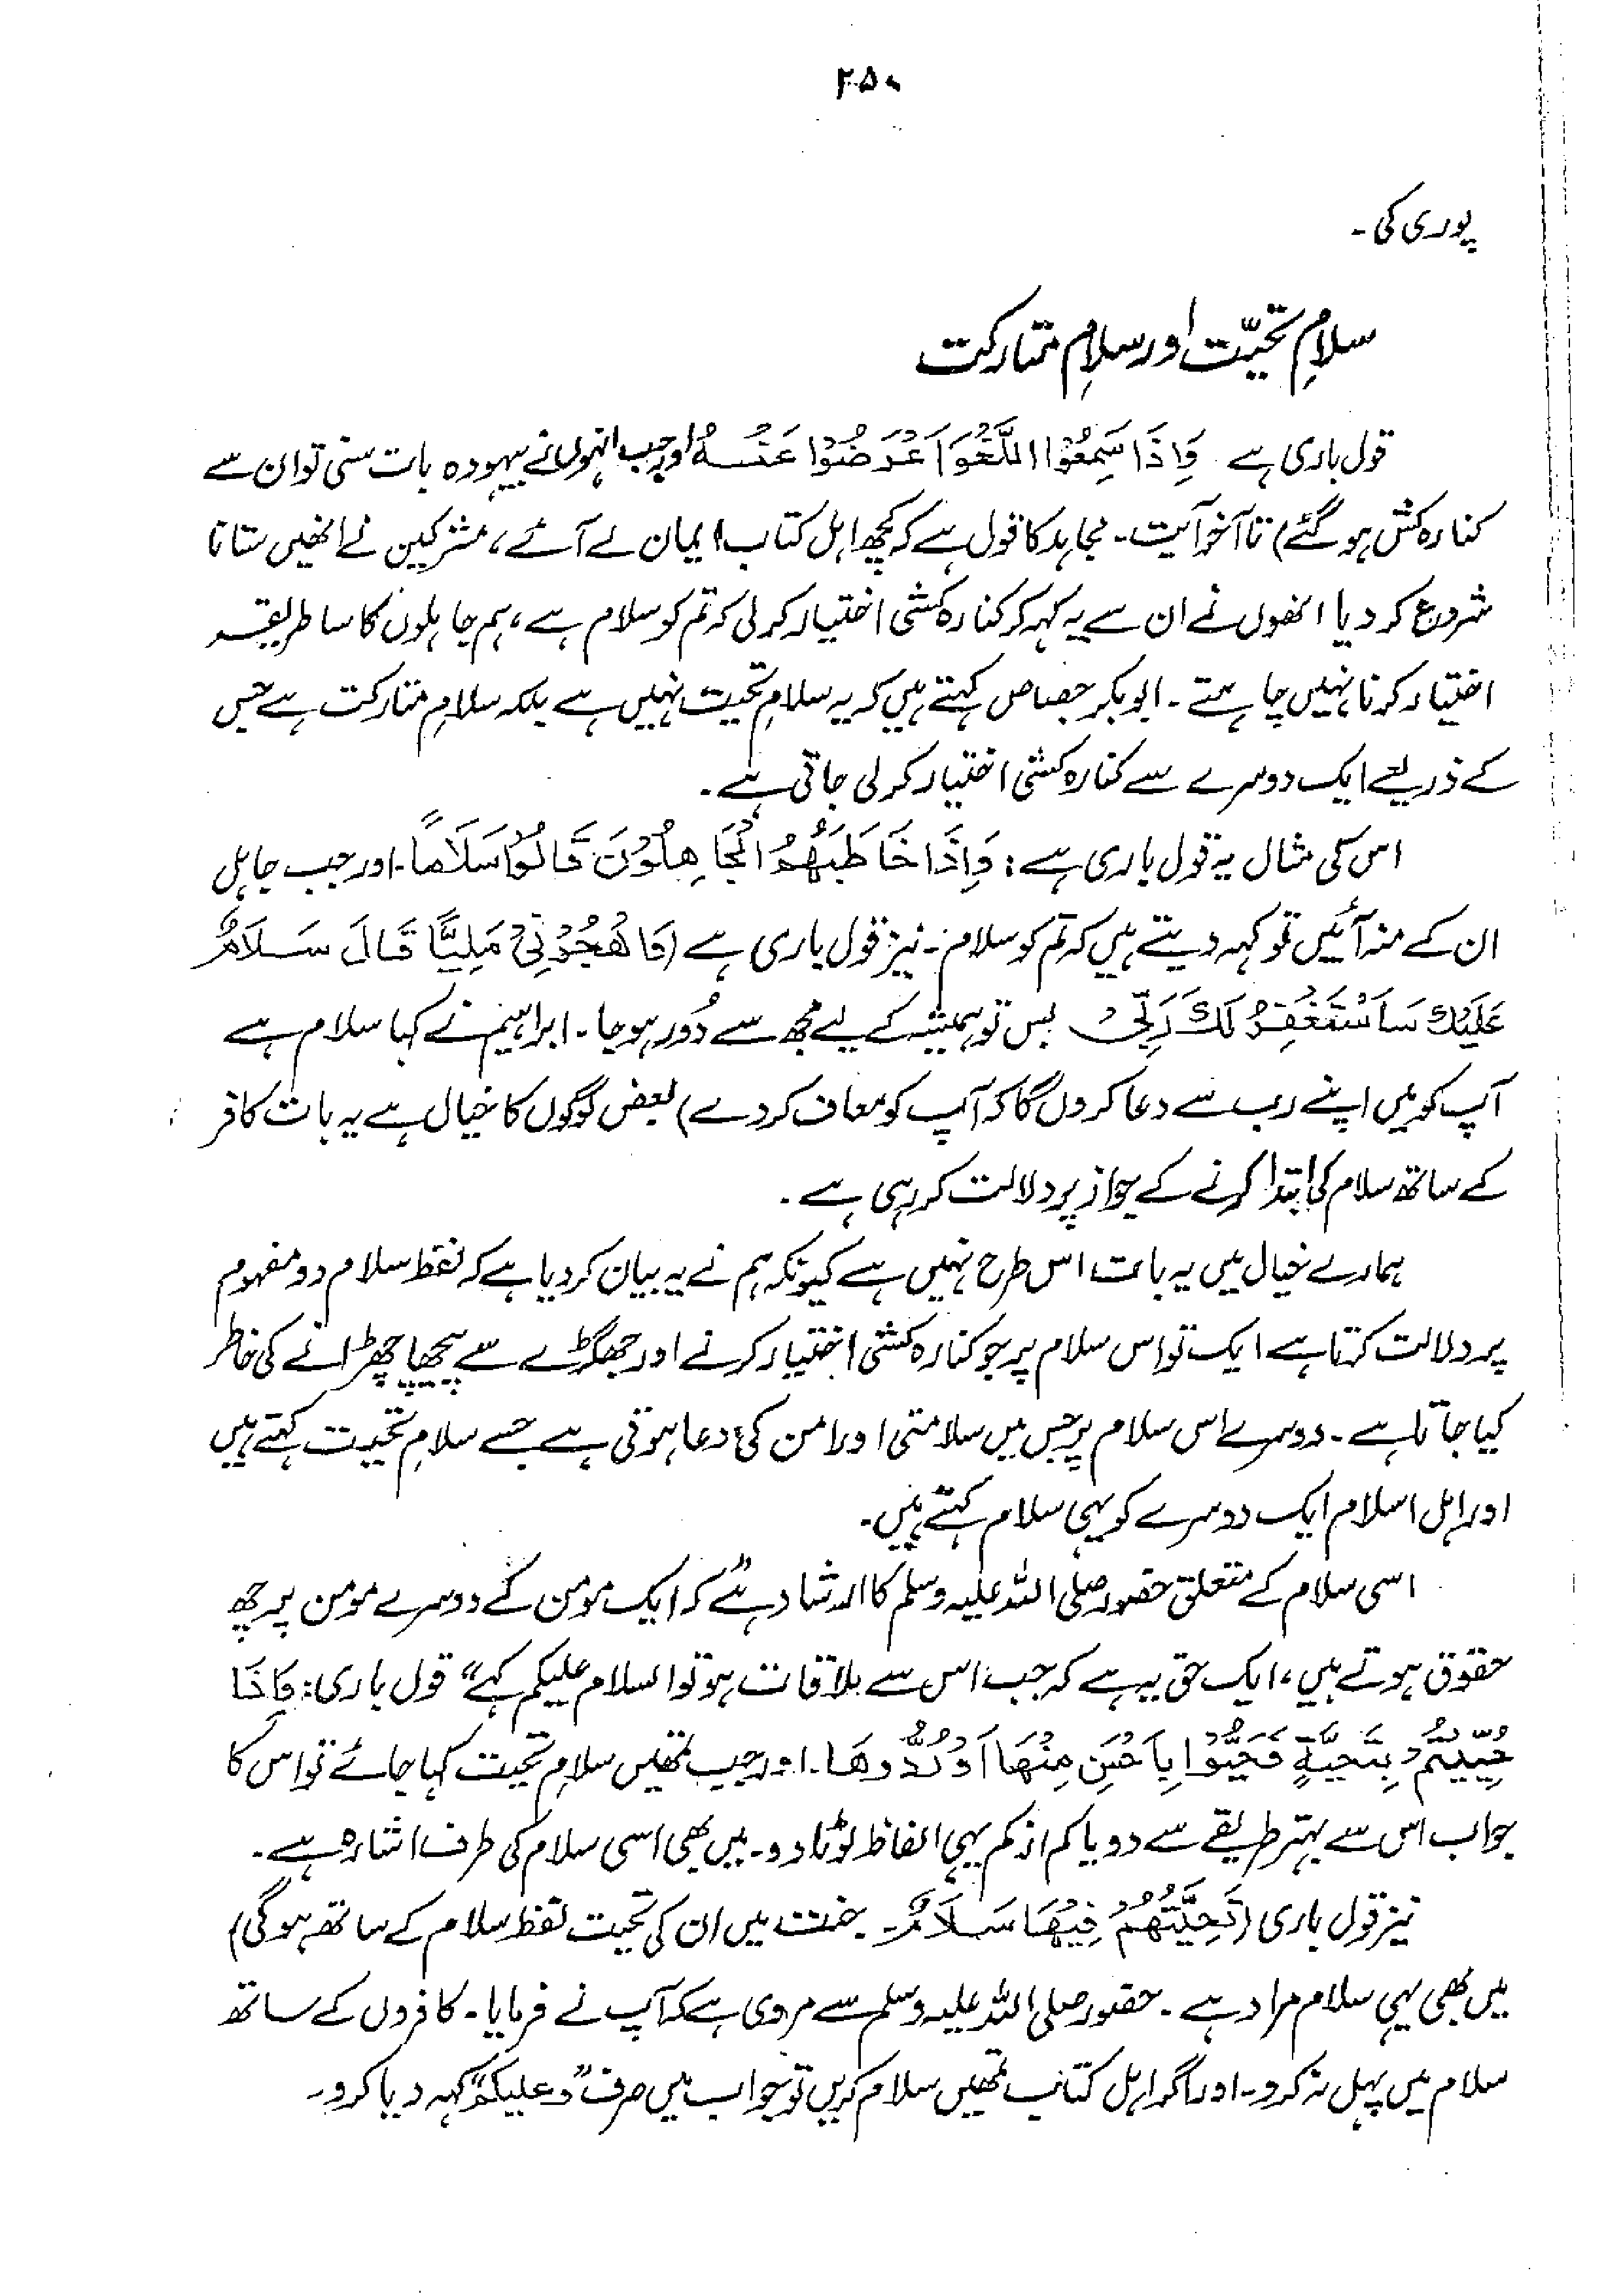 ۲۵۰
پوری کی۔
سلامِ تحیّت اور سلامِ متارکت
قول باری ہے وَاِذَا سَمِعُوا اللَّغْوَ اَعْرَضُوْا عَنْهُ اور جب انہوں نے بیہودہ بات سنی تو ان سے
کنارہ کش ہو گئے) تا آخر آیت۔ مجاہد کا قول ہے کہ کچھ اہل کتاب ایمان لے آئے، مشرکین نے انھیں ستانا
شروع کر دیا انھوں نے ان سے یہ کہہ کر کنارہ کشی اختیار کر لی کہ تم کو سلام ہے، ہم جاہلوں کا سا طریقہ
اختیار کرنا نہیں چاہتے۔ ابوبکر جصاص کہتے ہیں کہ یہ سلامِ تحیت نہیں ہے بلکہ سلامِ متارکت ہے جس
کے ذریعے ایک دوسرے سے کنارہ کشی اختیار کر لی جاتی ہے۔
اس کی مثال یہ قول باری ہے: وَاِذَا خَاطَبَهُمُ الْجَاهِلُوْنَ قَالُوْا سَلَامًا۔ اور جب جاہل
ان کے منہ آئیں تو کہہ دیتے ہیں کہ تم کو سلام۔ نیز قول باری ہے (وَاهْجُرْنِیْ مَلِیًّا قَالَ سَلَامٌ
عَلَیْكَ سَاَسْتَغْفِرُ لَكَ رَبِّیْ بس تو ہمیشہ کے لیے مجھ سے دُور ہو جا۔ ابراہیم نے کہا سلام ہے
آپ کو میں اپنے رب سے دعا کروں گا کہ آپ کو معاف کر دے) بعض لوگوں کا خیال ہے یہ بات کافر
کے ساتھ سلام کی ابتدا کرنے کے جواز پر دلالت کر رہی ہے۔
ہمارے خیال میں یہ بات اس طرح نہیں ہے کیونکہ ہم نے یہ بیان کر دیا ہے کہ لفظ سلام دو مفہوم
پر دلالت کرتا ہے ایک تو اس سلام پر جو کنارہ کشی اختیار کرنے اور جھگڑے سے پیچھا چھڑانے کی خاطر
کیا جاتا ہے۔ دوسرے اس سلام پر جس میں سلامتی اور امن کی دعا ہوتی ہے جسے سلامِ تحیت کہتے ہیں
اور اہل اسلام ایک دوسرے کو یہی سلام کہتے ہیں۔
اسی سلام کے متعلق حضور صلی اللہ علیہ وسلم کا ارشاد ہے "کہ ایک مومن کے دوسرے مومن پر چھ
حقوق ہوتے ہیں، ایک حق یہ ہے کہ جب اس سے ملاقات ہو تو السلام علیکم کہے" قول باری: وَاِذَا
حُيِّيْتُمْ بِتَحِيَّةٍ فَحَيُّوْا بِاَحْسَنَ مِنْهَا اَوْ رُدُّوهَا۔ اور جب تمھیں سلامِ تحیت کہا جائے تو اس کا
جواب اس سے بہتر طریقے سے دو یا کم از کم یہی الفاظ لوٹا دو۔ میں بھی اسی سلام کی طرف اشارہ ہے۔
نیز قول باری (تَحِيَّتُهُمْ فِيْهَا سَلَامٌ۔ جنت میں ان کی تحیت لفظ سلام کے ساتھ ہوگی)
میں بھی یہی سلام مراد ہے۔ حضور صلی اللہ علیہ وسلم سے مروی ہے کہ آپ نے فرمایا۔ کافروں کے ساتھ
سلام میں پہل نہ کرو۔ اور اگر اہل کتاب تمھیں سلام کریں تو جواب میں صرف "وعلیکم" کہہ دیا کرو۔